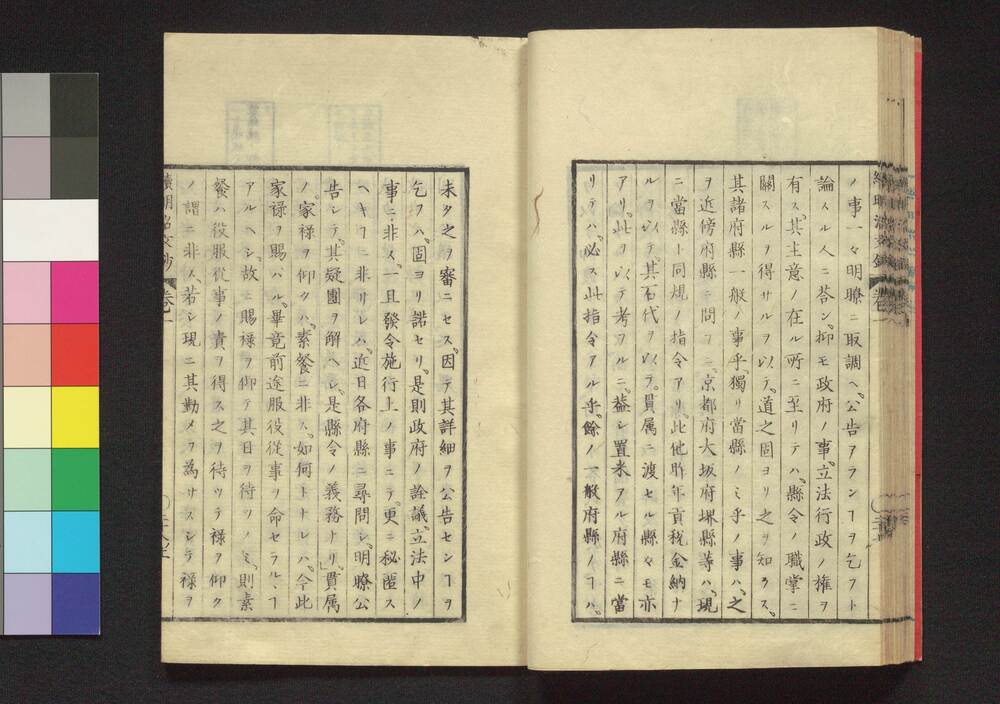 ノ事一々明瞭ニ取調ヘ公告アランヿヲ乞フト
論スル人ニ荅シ抑モ政府ノ事立法行政ノ権ヲ
有ス其主意ノ在ル所ニ至リテハ縣令ノ職掌ニ
關スルヲ得サルヲ以テ道之固ヨリ之ヲ知ラス
其諸府縣一般ノ事乎獨リ當縣ノミ乎ノ事ハ之
ヲ近傍府縣ニ問フニ京都府大坂府堺縣等ハ現
ニ當縣ト同規ノ指令アリ此他昨年貢税金納ナ
ルヲ以テ其石代ヲ以テ貫属ニ渡セル縣々モ亦
アリ此ヲ以テ考フルニ蓋シ置米アル府縣ニ當
リテハ必ス此指令アル乎餘ノ一般府縣ノヿハ
未タ之ヲ審ニセス因テ其詳細ヲ公告センヿヲ
乞フハ固ヨリ諾セリ是則政府ノ詮議立法中ノ
事ニ非ス一旦發令施行上ノ事ニテ更ニ秘匿ス
ヘキヿニ非リレハ近日各府縣ニ尋問シ明瞭公
告シテ其疑團ヲ解ヘシ是縣令ノ義務トリ貫属
ノ家禄ヲ仰クハ素餐ニ非ス如何トトレハ今此
家禄ヲ賜ハル畢竟前途服役従事ヲ命セラルヽヿ
アルヘシ故ニ賜禄ヲ仰テ其日ヲ待ツノミ則素
餐ハ役服従事ノ責ヲ得ス之ヲ待ツテ禄ヲ仰ク
ノ謂ニ非ス若シ現ニ其勤メヲ為サスシテ禄ヲ
續明治文鈔 巻一